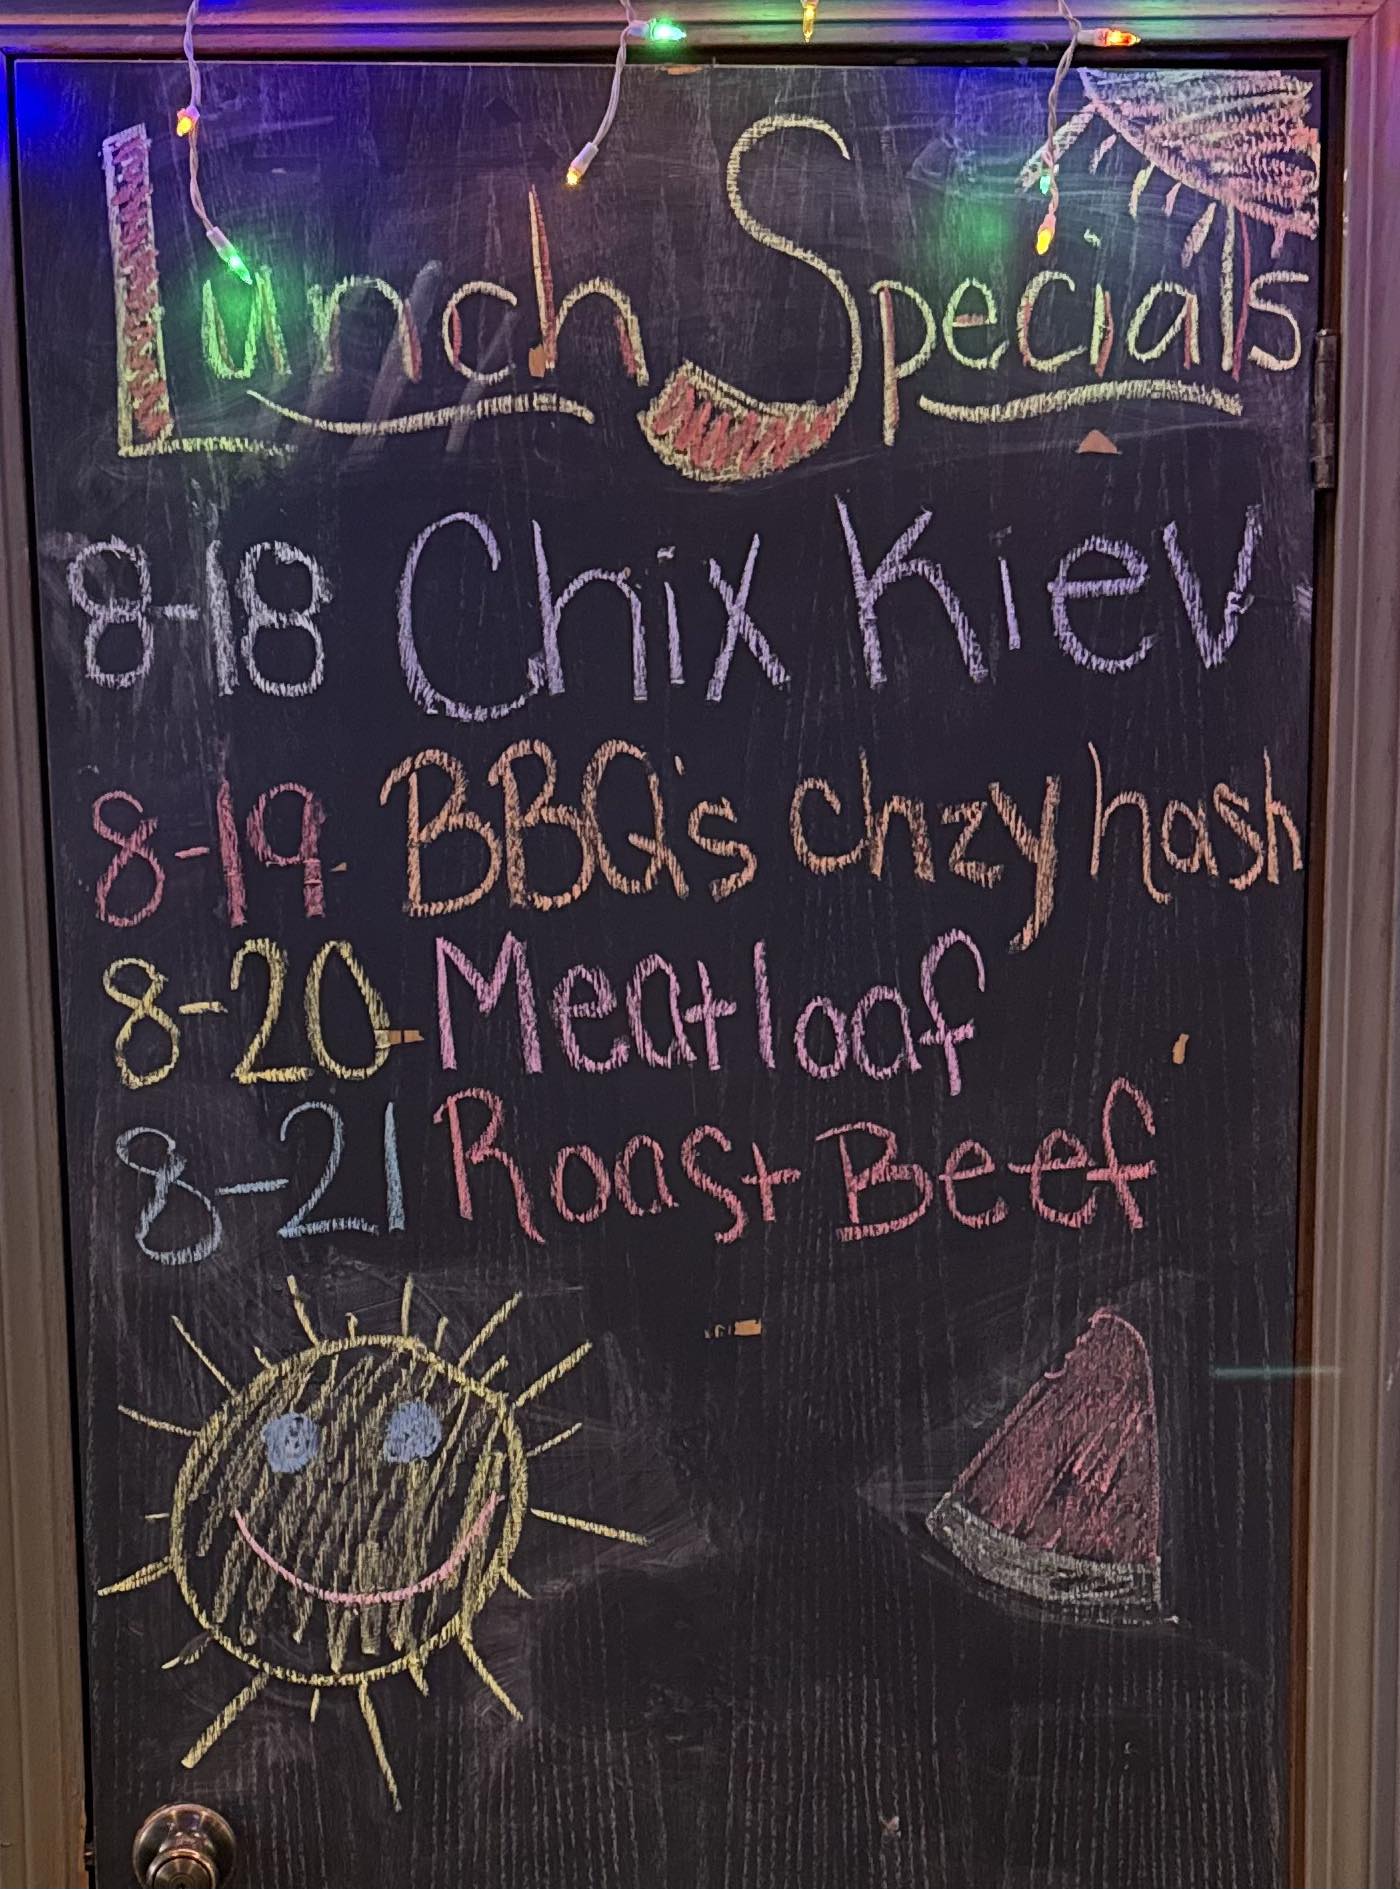 Lunch Specials
8-18 Chix Kiev
8-19 BBQ's chzy hash
8-20 Meatloaf
8-21 Roast Beef